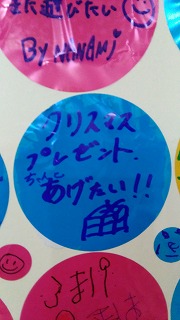 また遊びたい
By MINAMI
クリスマス
プレゼント.
ちゃんと
あげたい!!